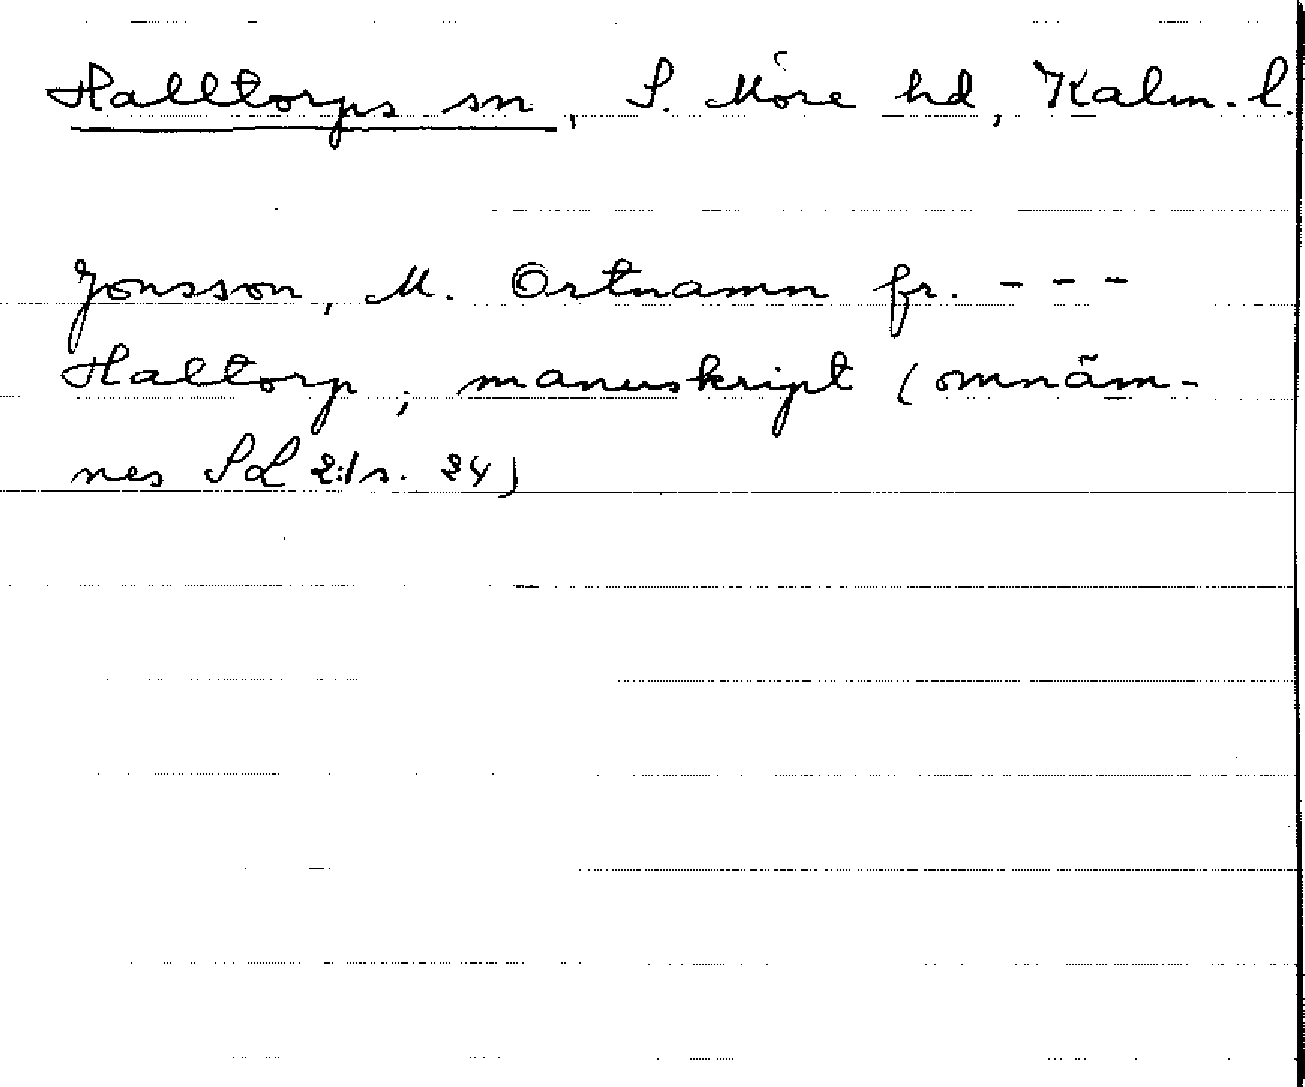 Halltorps sn, S. Möre hd, Kalm. l.
Jonsson, M. Ortnamn fr. - - -
Haltorp, manuskript (omnäm-
nes SL 2:1 s. 24)